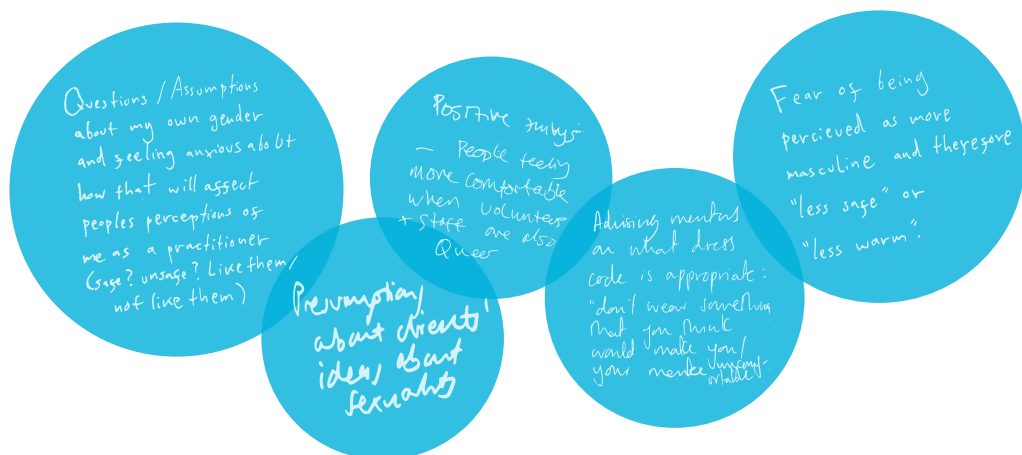 Questions / Assumptions
about my own gender
and feeling anxious about
how that will affect
peoples perceptions of
me as a practitioner
(safe? unsafe? Like them/
not like them)
Presumptions
about clients'
ideas about
sexuality
Positive things:
– People feeling
more comfortable
when volunteers
+ staff are also
Queer
Advising mentors
on what dress
code is appropriate:
"don't wear something
that you think
would make you/
your mentee uncomf-
ortable"
Fear of being
percieved as more
masculine and therefore
"less safe" or
"less warm".